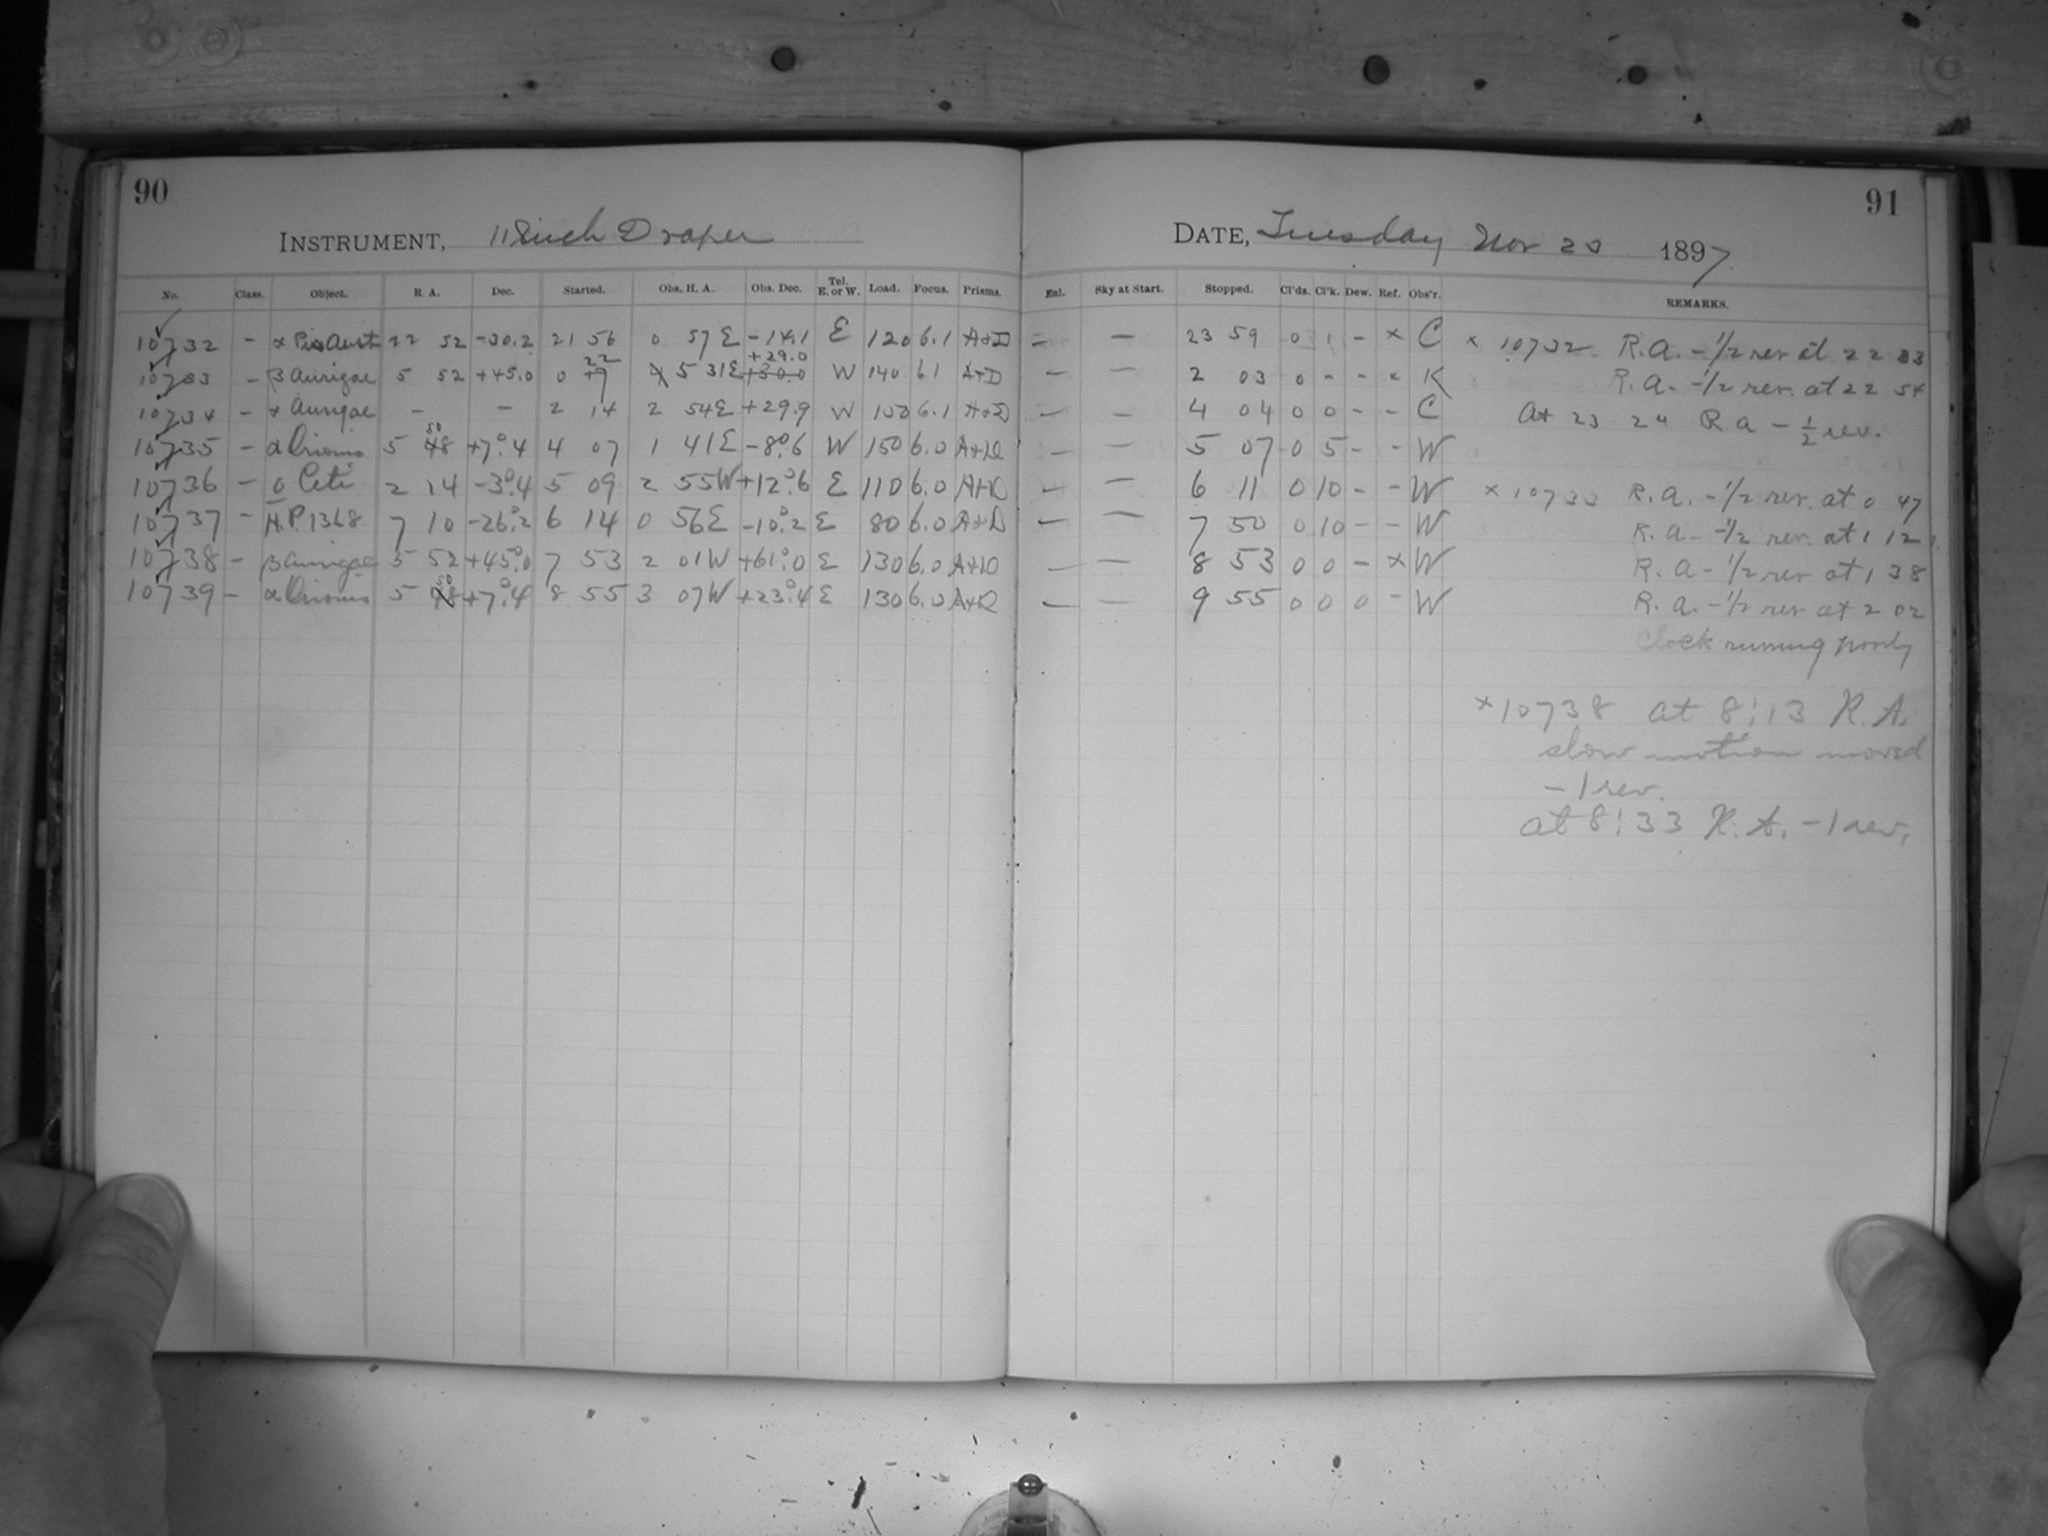 90
91
INSTRUMENT, 11 inch Draper
DATE, Tuesday Nov 1897
No. Class. Object. R. A. Dec. Started. Obs. H. A. Obs. Dec. Tel. E. or W. Load. Focus. Prisms. Enl. Sky at Start. Stopped. Cl'ds. Cl'k. Dew. Ref. Obs'r. REMARKS.
10732 - α Pis Aust 22 52 -30.2 21 56 0 57 E -14.1 E 120 6.1 A+D - - 23 59 0 1 - × C
22 +29.0
10733 - β Aurigae 5 52 +45.0 0 5 31 E +30.0 W 140 6.1 A+D - - 2 03 0 - - × K
10734 - α Aurigae - - 2 14 2 54 E +29.9 W 150 6.1 A+D - - 4 04 0 0 - - C
50
10735 - α Orionis 5 48 +7°.4 4 07 1 41 E -8°.6 W 150 6.0 A+D - - 5 07 0 5 - - W
10736 - o Ceti 2 14 -3°.4 5 09 2 55 W +12°.6 E 110 6.0 A+D - - 6 11 0 10 - - W
10737 - H.P. 1368 7 10 -26°.2 6 14 0 56 E -10°.2 E 80 6.0 A+D - - 7 50 0 10 - - W
10738 - β Aurigae 5 52 +45°.0 7 53 2 01 W +61°.0 E 130 6.0 A+D - - 8 53 0 0 - × W
50
10739 - α Orionis 5 48 +7°.4 8 55 3 07 W +23°.4 E 130 6.0 A+D - - 9 55 0 0 0 - W
× 10732 R.A. -1/2 rev at 22 33
R.A. -1/2 rev. at 22 54
At 23 24 R A - 1/2 rev.
× 10733 R.A. -1/2 rev. at 0 47
R.A. -1/2 rev. at 1 12
R.A -1/2 rev at 1 38
R.A. -1/2 rev at 2 02
Clock running poorly
× 10738 at 8:13 R.A.
slow motion moved
- 1 rev.
at 8:33 R.A. -1 rev.